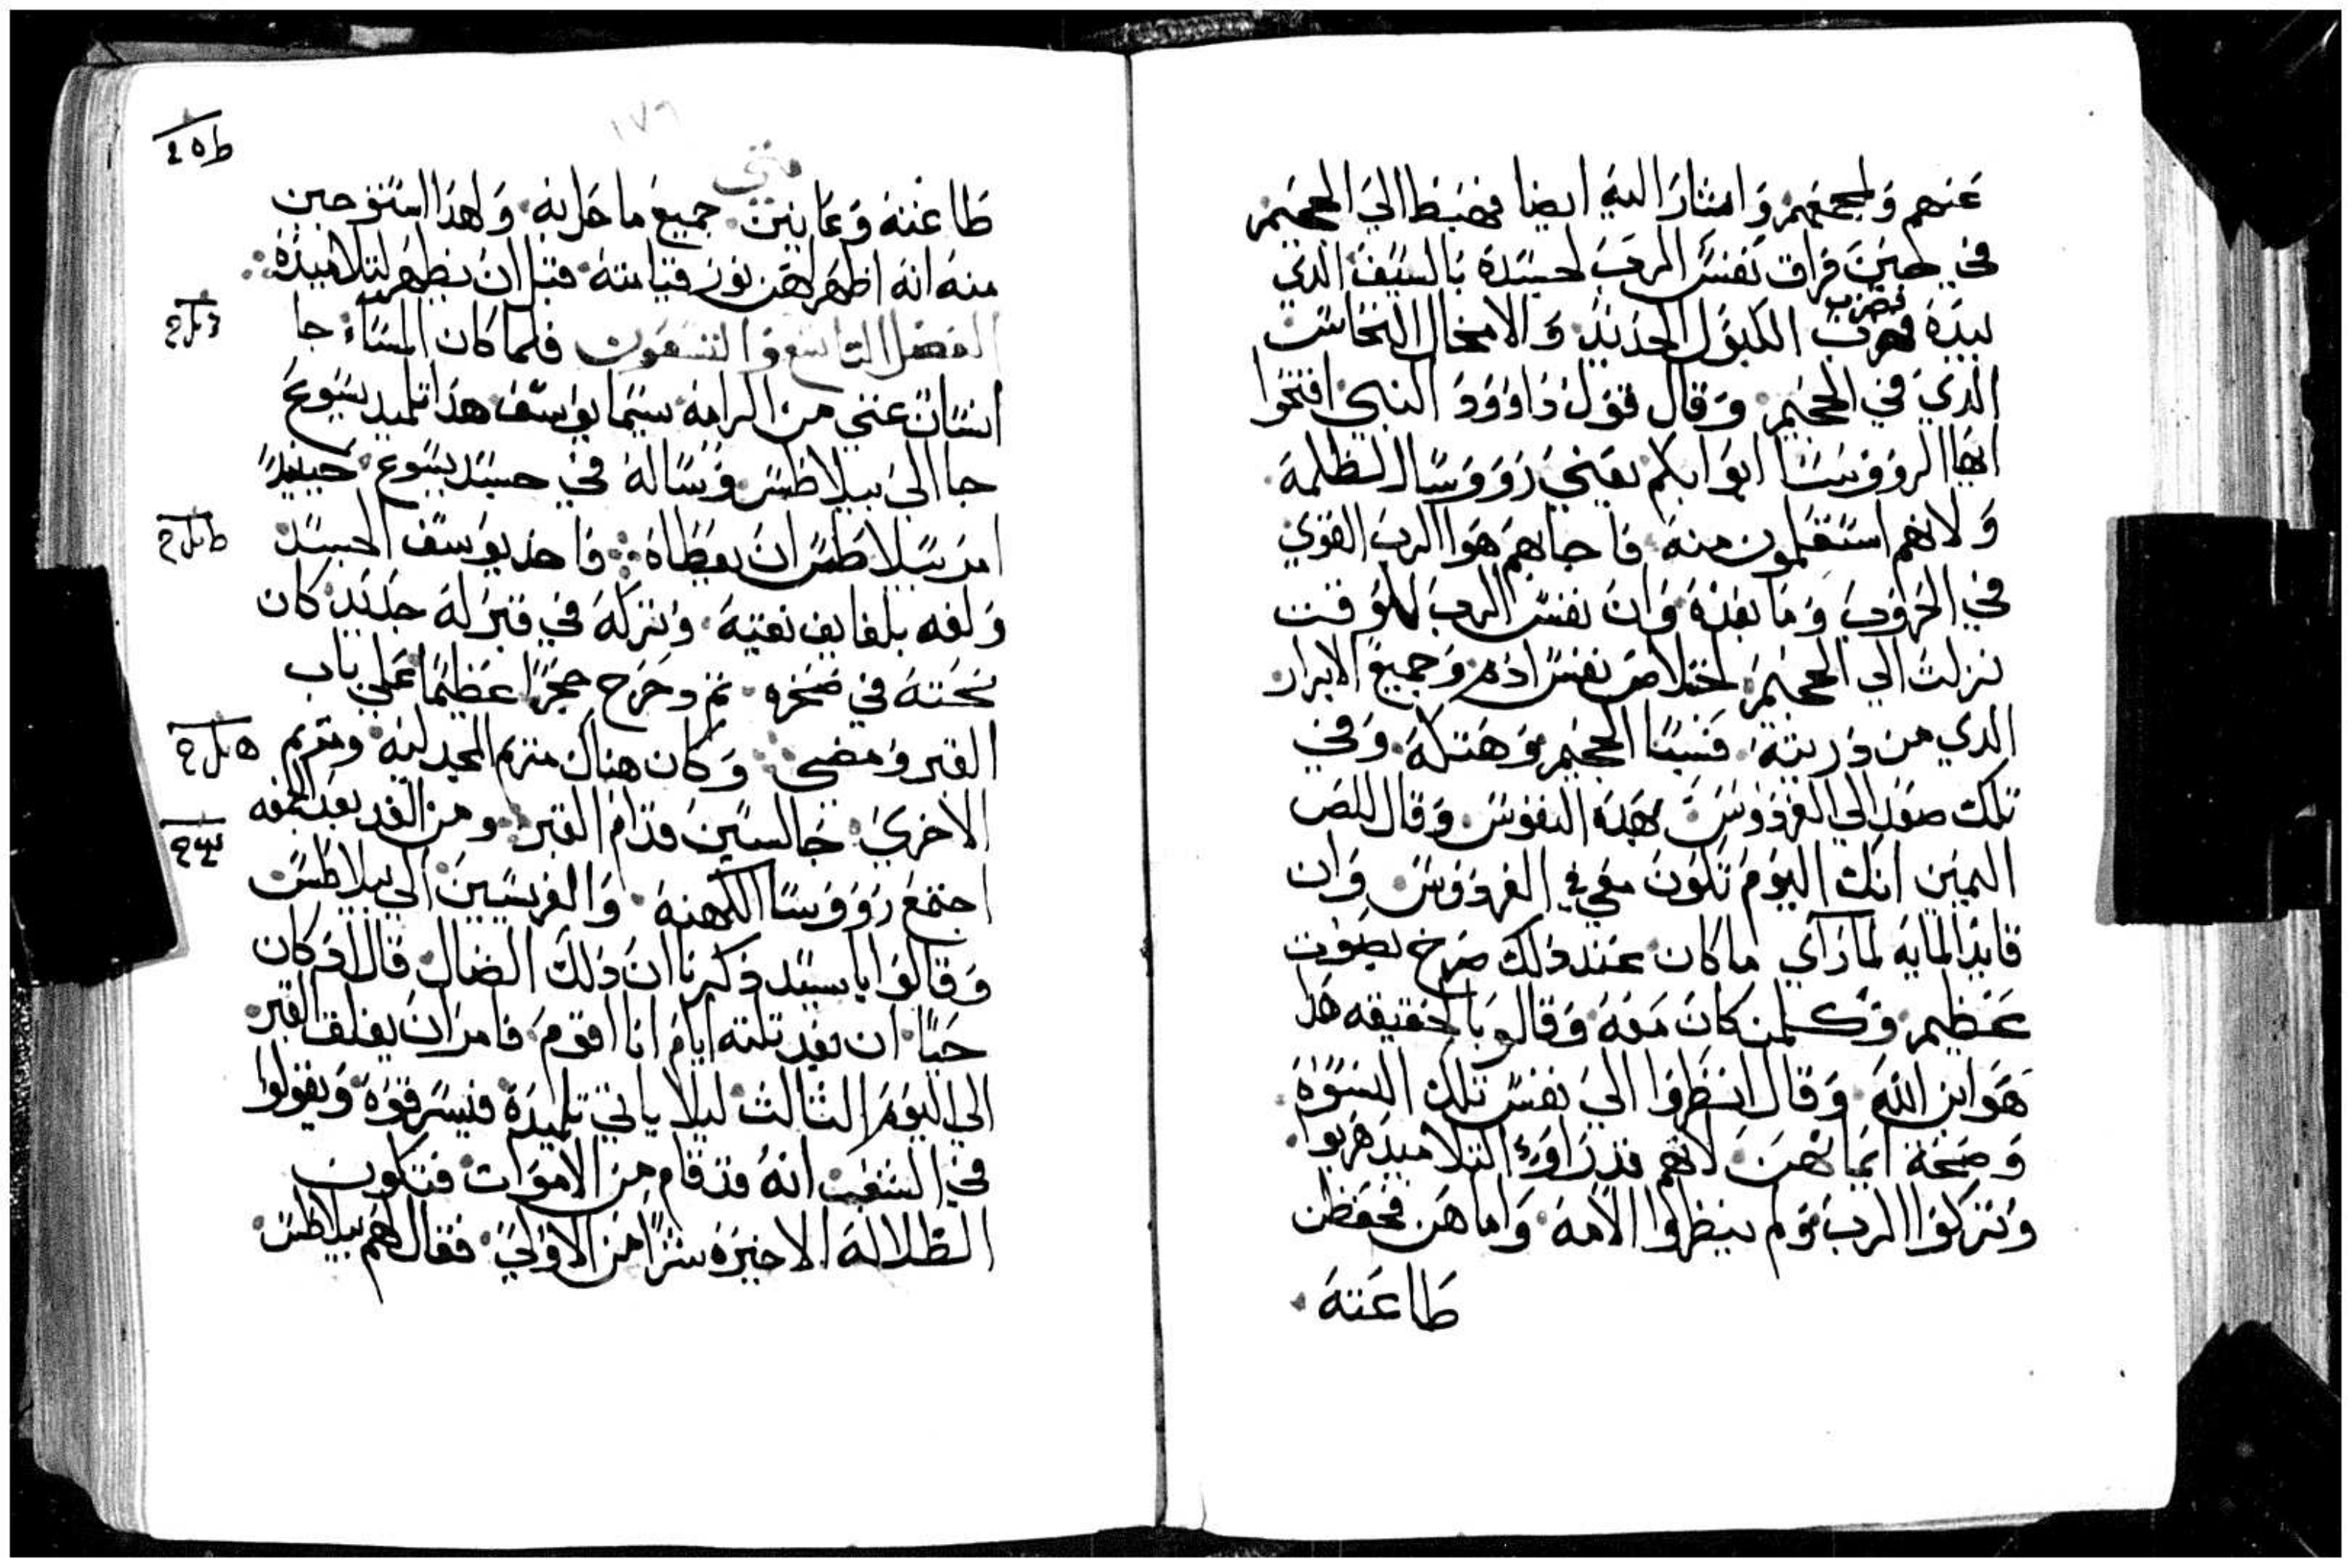 عنهم ولجحفهم وامتار اليه ايضا فهبط الي الجحيم
في حين فراق نفس الرب لجسده بالسيف الدي
بيده فضرب الكبول الحديد والامخال النحاس
الدي في الجحيم وقال قول داوود النبي افتحوا
ايها الرووسا ابوابكم يعني رووسا الظلمة
ولانهم استعلمون منه فاجابهم هوا الرب القوي
في الحروب وما بعده وان نفس الرب للوقت
نزلت الي الجحيم لخلاص نفس ادم وجميع الابرار
الدي من دريته فسبا الجحيم وهتكه وفي
تلك صعد الي الفردوس بهده النفوس وقال للص
اليمين انك اليوم تكون معي في الفردوس وان
قايد المايه لما راي ما كان عند دلك صرخ بصوت
عظيم وكلمن كان معه وقالو بالحقيقه هدا
هو ابن الله وقال انظروا الي نفس تلك النسوة
وصحة ايمانهن لانهم قد راوء التلاميد هربوا
وتركوا الرب ولم ينظروا الامه واما هن فحفظن
طاعته
١٧٦
متي
طاعته وعاينين جميع ما حل به ولهدا استوجبن
منه انه اظهر لهن نور قيامته قبل ان يظهر لتلاميده
الفصل التاسع والتسعون فلما كان المساء جا
انسان غني من الرامه يسما يوسف هدا تلميد يسوع
جا الي بيلاطس وساله في جسد يسوع حينيد
امر بيلاطس ان يعطاه فاخد يوسف الجسد
ولفه بلفايف نقيه وتركه في قبر له جديد كان
نحته في صخره تم دحرج حجرا عظيما علي باب
القبر ومضي وكان هناك مريم المجدليه ومريم
الاخري جالسين قدام القبر ومن الغد بعد الجمعه
اجتمع رووسا الكهنه والفريسيين الي بيلاطس
وقالوا يا سيد دكرنا ان دلك الضال قال اد كان
حيا ان بعد تلته ايام انا اقوم فامر ان يغلق القبر
الي اليوم التالت ليلا ياتي تلاميده فيسرقوه ويقولوا
في الشعب انه قد قام من الاموات فتكون
الظلالة الاخيره شرا من الاولي فقال لهم بيلاطس